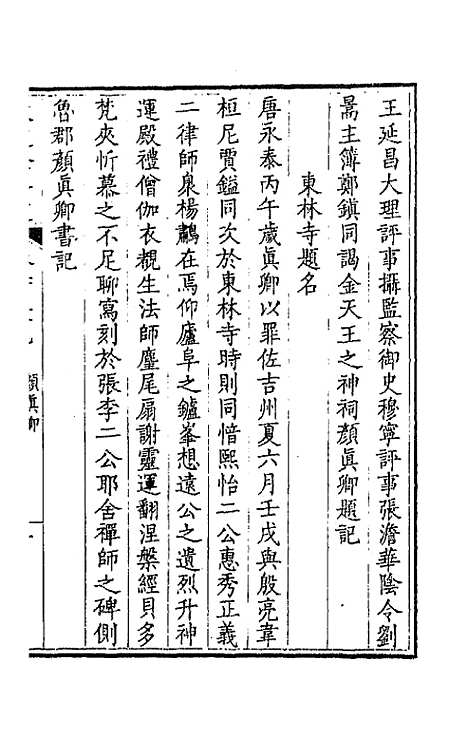 王延昌大理評事攝監察御史穆寧評事張澹華陰令劉
暠主簿鄭鎮同謁金天王之神祠顏眞卿題記
東林寺題名
唐永泰丙午歲眞卿以罪佐吉州夏六月壬戌與殷亮韋
桓尼賈鎰同次於東林寺時則同愔熙怡二公惠秀正義
二律師泉楊鸕在焉仰廬阜之鑪峯想遠公之遺烈升神
運殿禮僧伽衣覩生法師麈尾扇謝靈運翻涅槃經貝多
梵夾忻慕之不足聊寓刻於張李二公耶舍禪師之碑側
魯郡顏眞卿書記
顏眞卿